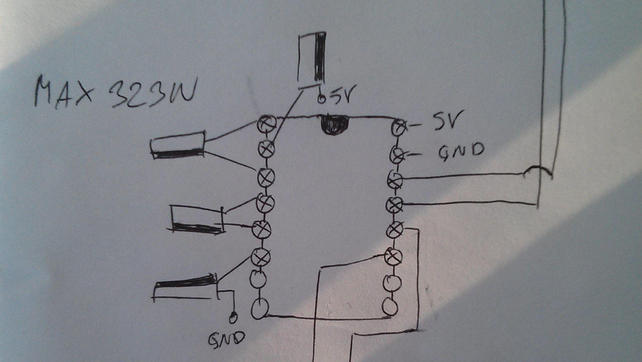 MAX 323N
5V
5V
GND
GND